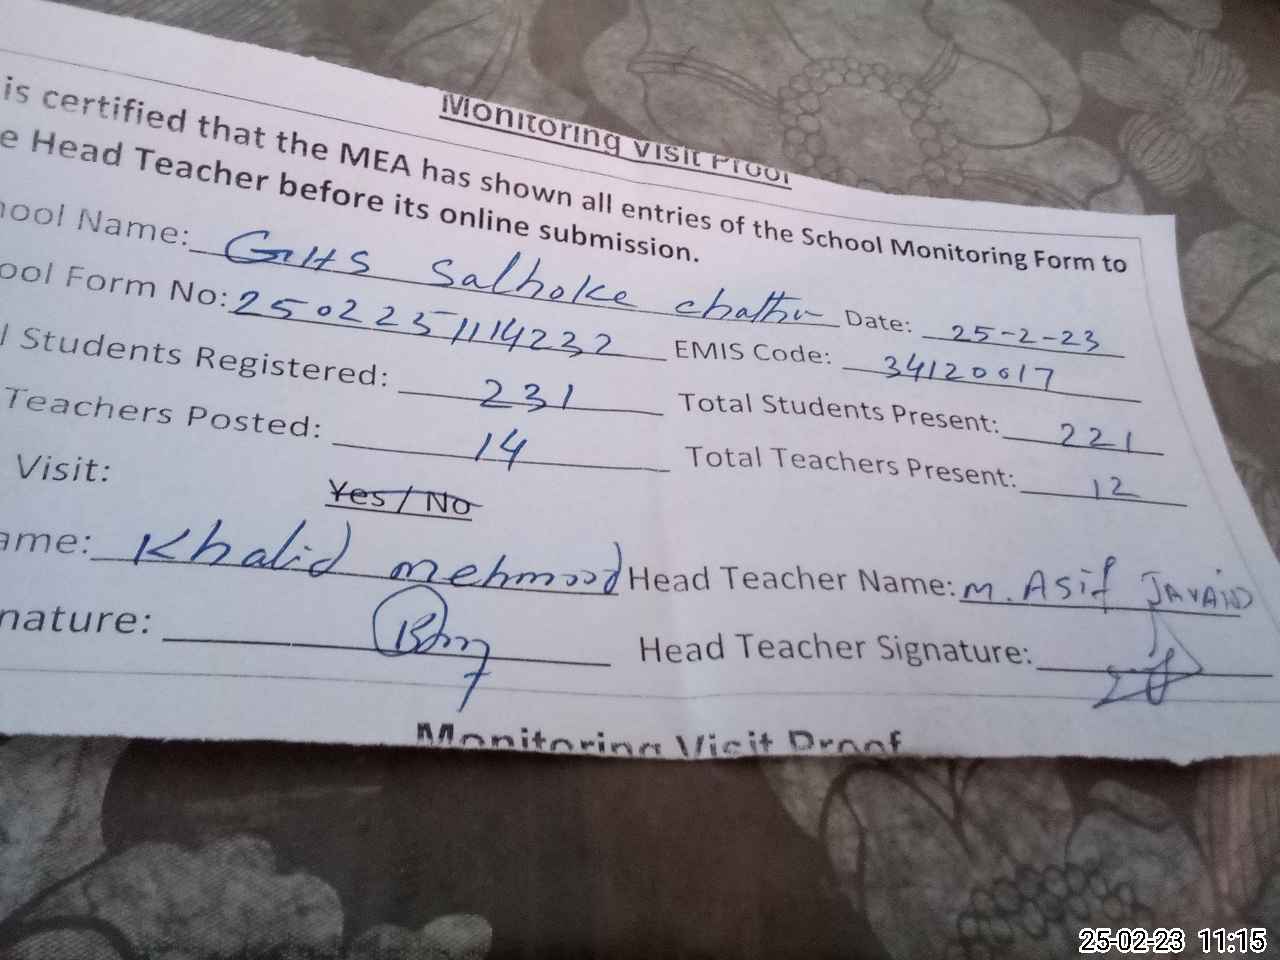 Monitoring Visit Proof
is certified that the MEA has shown all entries of the School Monitoring Form to
e Head Teacher before its online submission.
hool Name: GHS Salhoke chatha Date: 25-2-23
ool Form No: 2502251114232 EMIS Code: 34120017
l Students Registered: 231 Total Students Present: 221
Teachers Posted: 14 Total Teachers Present: 12
Visit: Yes / No
ame: Khalid mehmood Head Teacher Name: M. Asif JAVAID
nature: Head Teacher Signature:
Monitoring Visit Proof
25-02-23 11:15